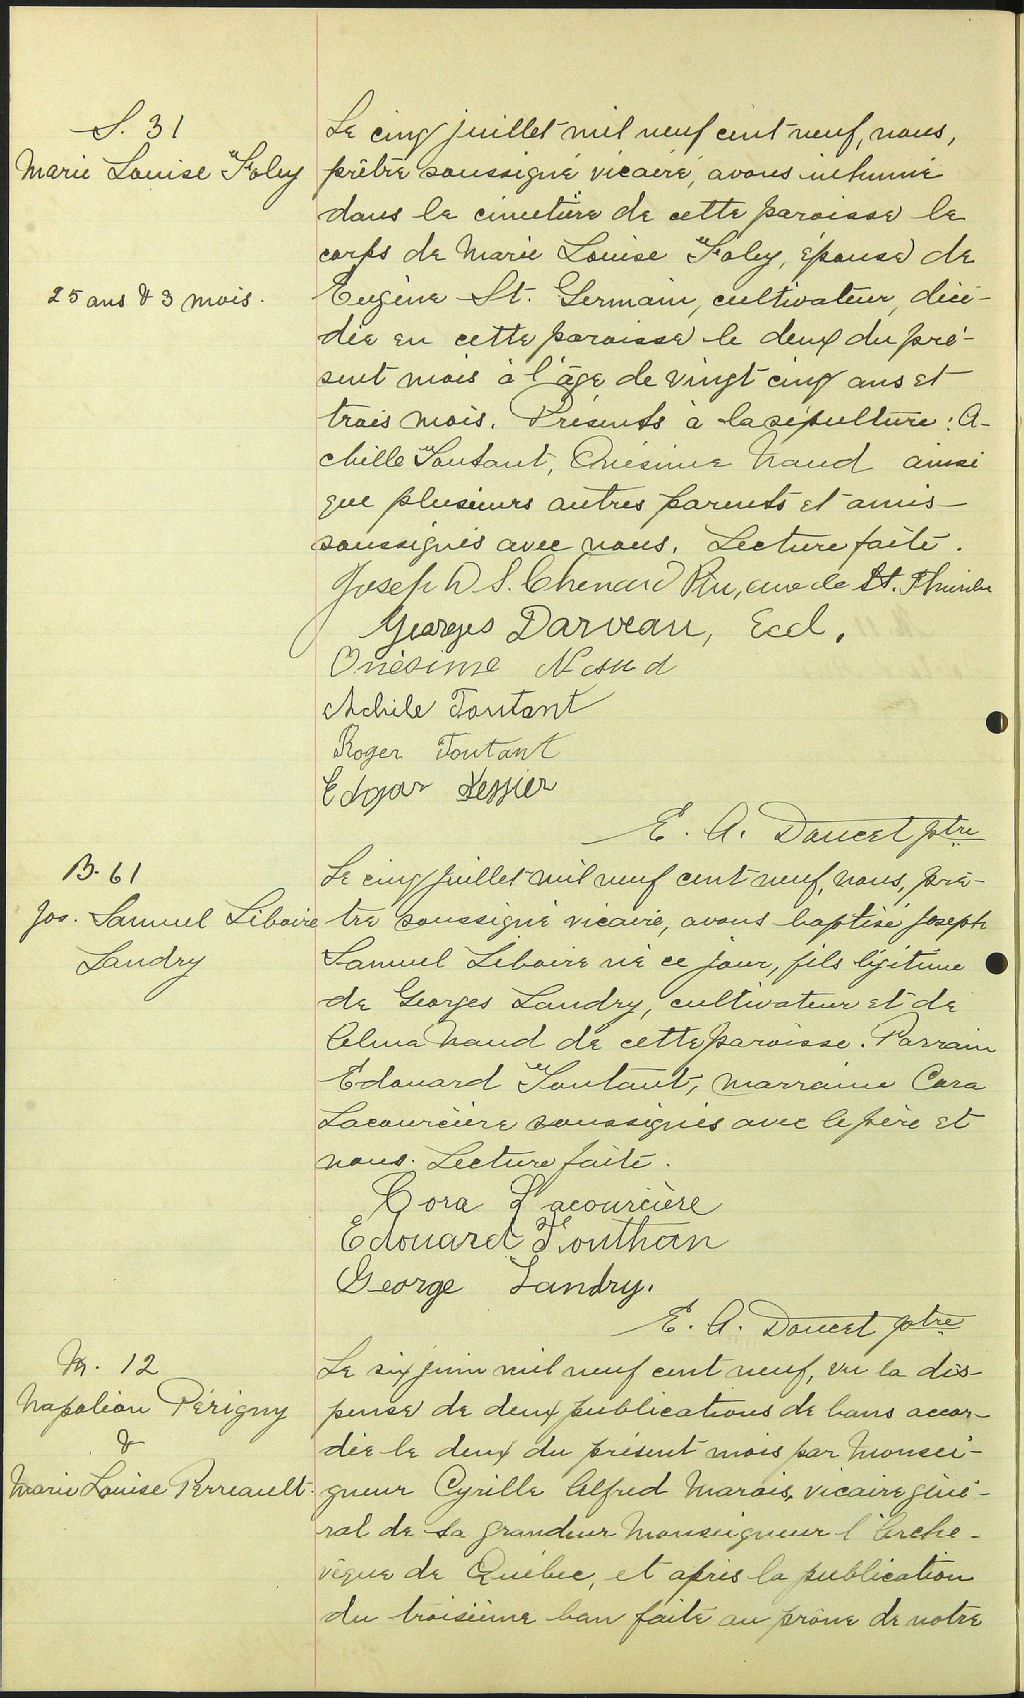 S. 31
Marie Louise Foley
25 ans & 3 mois.
Le cinq juillet mil neuf cent neuf, nous,
prêtre soussigné vicaire, avons inhumé
dans le cimetière de cette paroisse le
corps de Marie Louise Foley, épouse de
Eugène St. Germain, cultivateur, décé-
dée en cette paroisse le deux du pré-
sent mois à l'âge de vingt cinq ans et
trois mois. Présents à la sépulture: A-
chille Toutant, Onésime Naud ainsi
que plusieurs autres parents et amis
soussignés avec nous. Lecture faite.
Joseph D S. Chenard Ptre, curé de St.
Georges Darveau, Eccl.
Onésime Naud
Achile Toutant
Roger Toutant
Edgar Tessier
E. A. Doucet ptre
B. 61
Jos. Samuel Liboire
Landry
Le cinq juillet mil neuf cent neuf, nous, prê-
tre soussigné vicaire, avons baptisé Joseph
Samuel Liboire né ce jour, fils légitime
de Georges Landry, cultivateur et de
Alma Naud de cette paroisse. Parrain
Edouard Toutant, marraine Cora
Lacourcière soussignés avec le père et
nous. Lecture faite.
Cora Lacourcière
Edouard Touthan
George Landry.
E. A. Doucet ptre
M. 12
Napoléon Périgny
&
Marie Louise Perreault.
Le six juin mil neuf cent neuf, vu la dis-
pense de deux publications de bans accor-
dée le deux du présent mois par Monsei-
gneur Cyrille Alfred Marois, vicaire géné-
ral de Sa Grandeur Monseigneur l'Arche-
vêque de Québec, et après la publication
du troisième ban faite au prône de notre